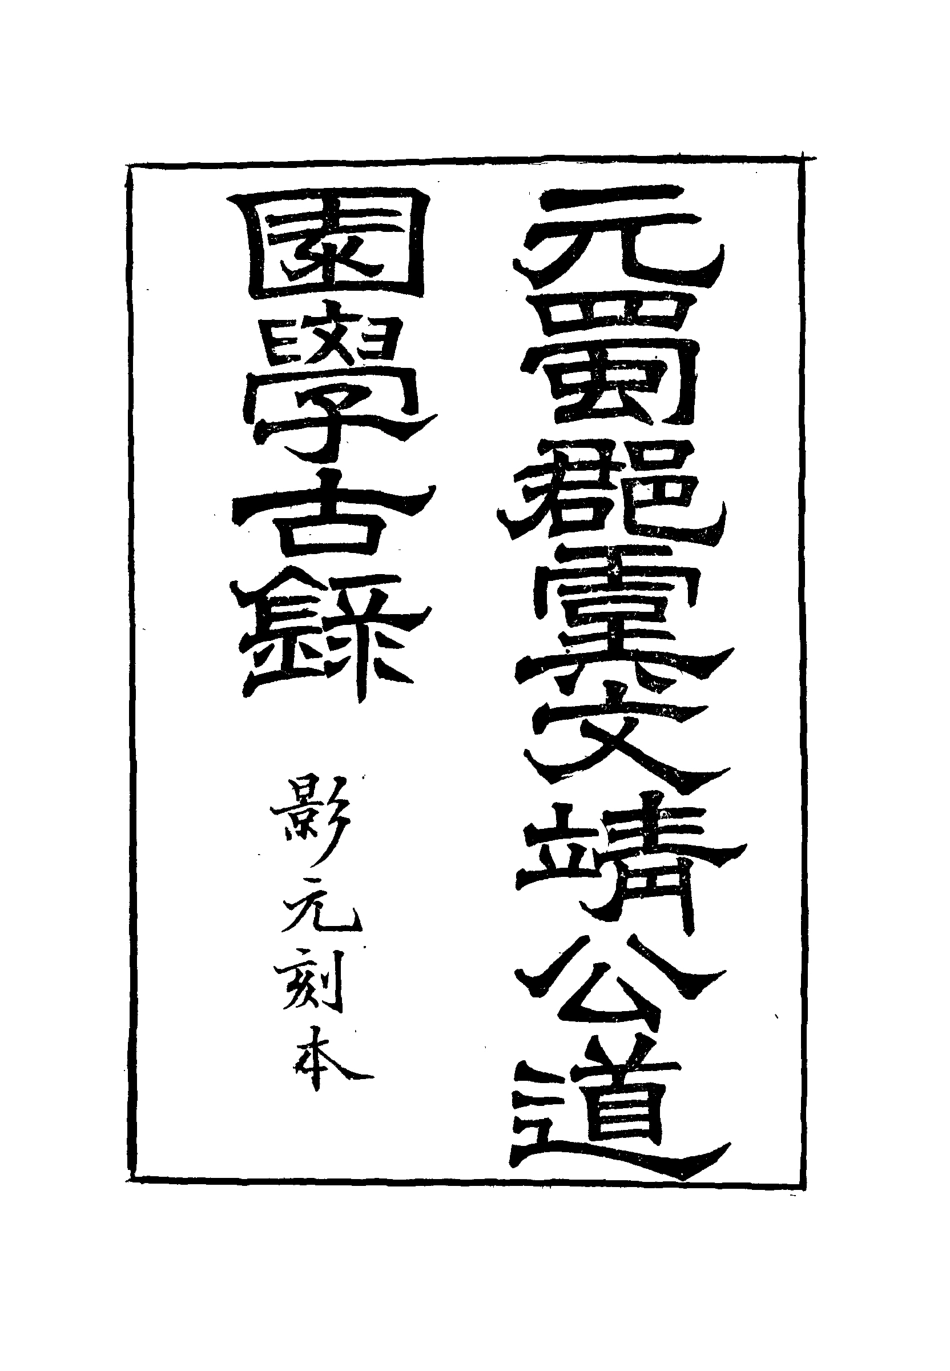 元蜀郡虞文靖公道
園學古錄 影元刻本